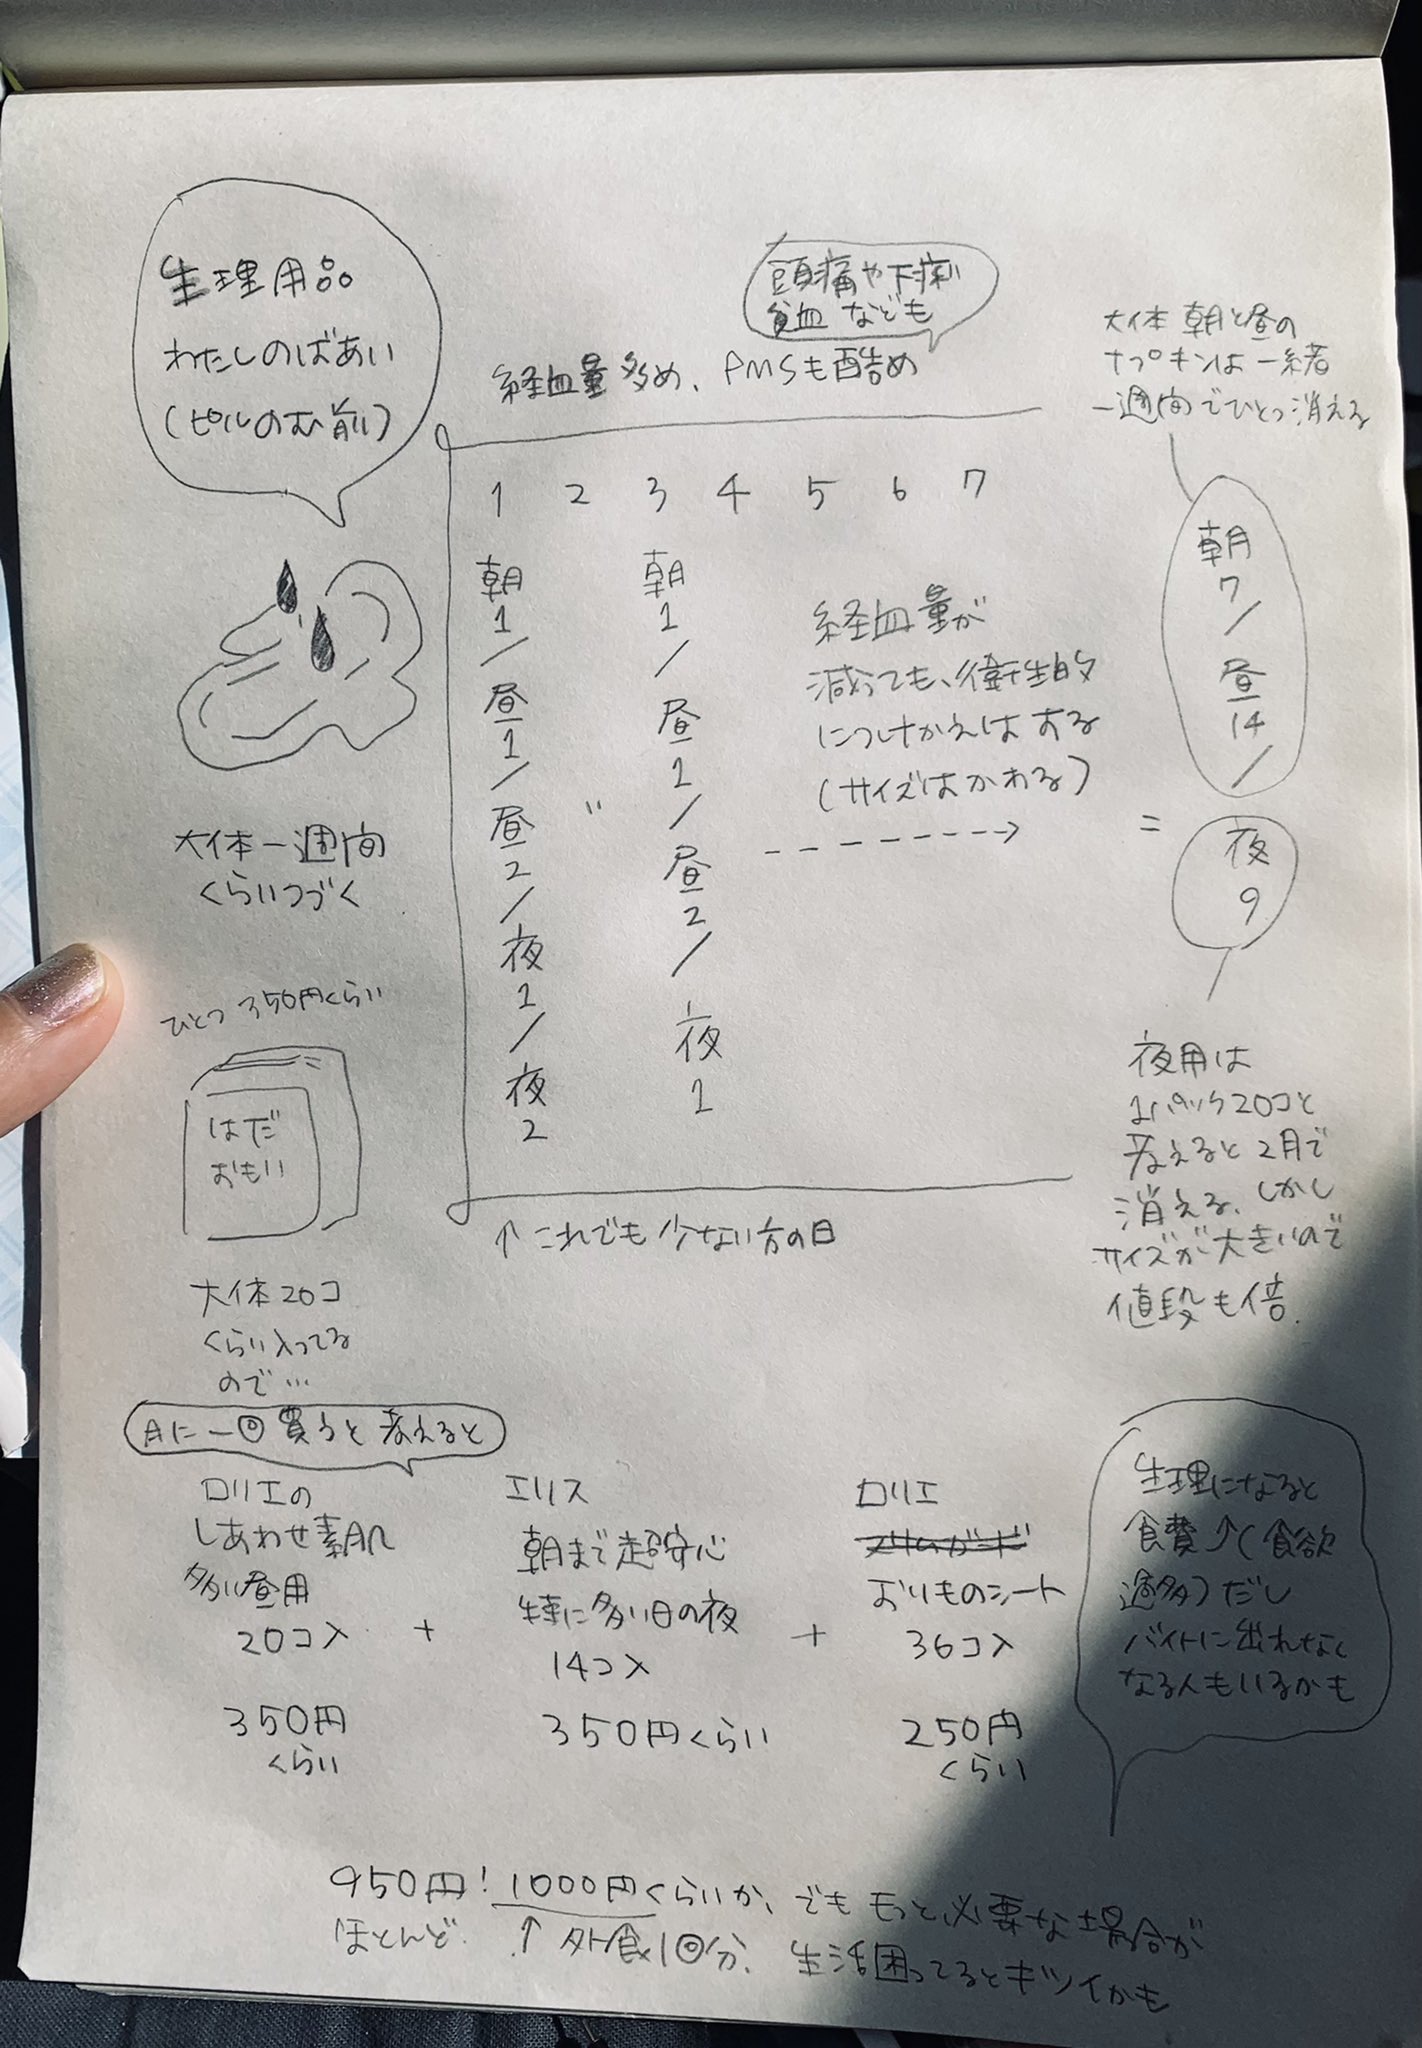 生理用品
わたしのばあい
(ピルのむ前)
頭痛や下痢
貧血なども
経血量多め、PMSも酷め
大体 朝と昼の
ナプキンは一緒
一週間でひとつ消える
1 2 3 4 5 6 7
朝
1
/
昼
1
/
昼
2
/
夜
1
/
夜
2
〃
朝
1
/
昼
1
/
昼
2
/
夜
1
経血量が
減っても、衛生的
につけかえはする
(サイズはかわる)
=
朝
7
/
昼
14
/
夜
9
大体一週間
くらいつづく
ひとつ 350円くらい
はだ
おもい
大体20コ
くらい入ってる
ので…
↑これでも少ない方の日
夜用は
1パック20コと
考えると2月で
消える、しかし
サイズが大きいので
値段も倍.
月に一回買うと考えると
ロリエの
しあわせ素肌
多い昼用
20コ入
350円
くらい
+
エリス
朝まで超安心
特に多い日の夜
14コ入
350円くらい
+
ロリエ
スリムガード
おりものシート
36コ入
250円
くらい
生理になると
食費↑(食欲
過多)だし
バイトに出れなく
なる人もいるかも
950円!1000円くらいか、でももっと必要な場合が
ほとんど. ↑外食1回分、生活困ってるとキツイかも